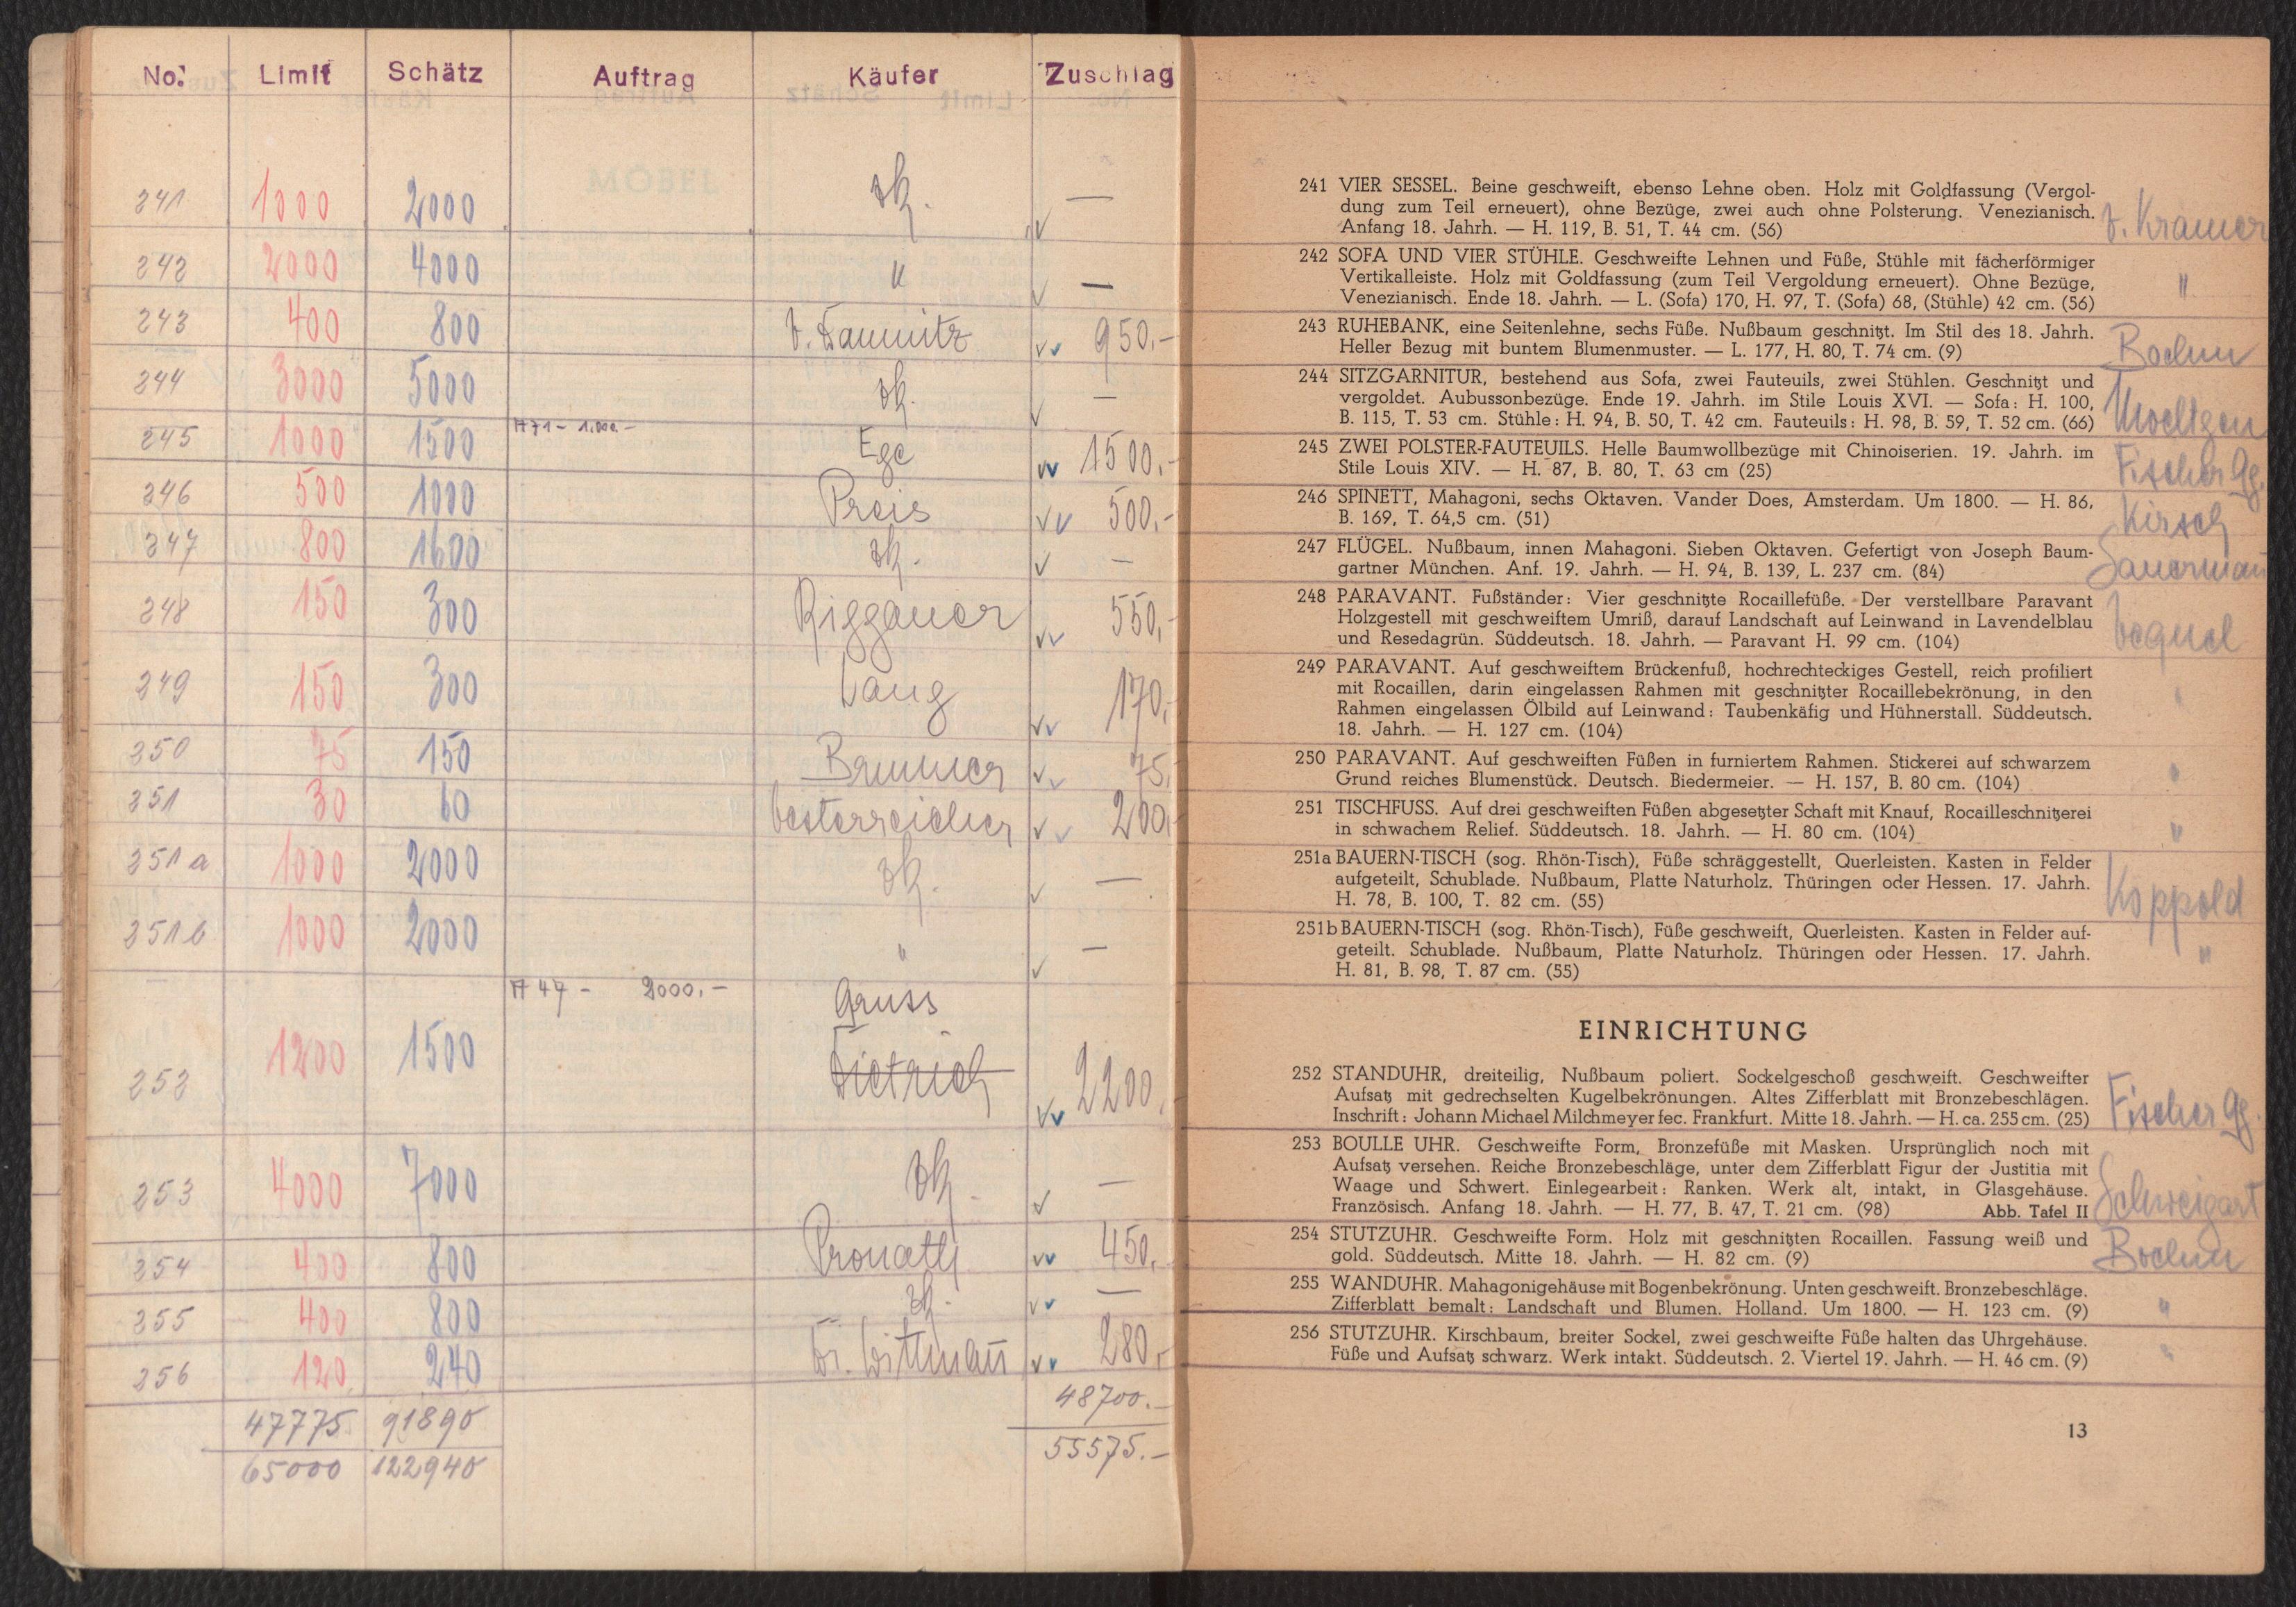 No. Limit Schätz Auftrag Käufer Zuschlag
241 1000 2000 zk. √ —
242 2000 4000 " √ —
243 400 800 v. √√ 950.-
244 3000 5000 zk. √ —
245 1000 1500 A 71 - 1.100.- Ege √√ 1500.-
246 500 1000 Preis √√ 500.-
247 800 1600 zk. √ —
248 150 300 Riggauer √√ 550.-
249 150 300 Lang √√ 170.-
250 75 150 Brummer √√ 75.-
251 30 60 Oesterreicher √√ 200.-
251a 1000 2000 zk. √ —
251b 1000 2000 " √ —
A 47 - 2000.- Gruss
252 1200 1500 Dietrich √√ 2200.-
253 4000 7000 zk. √ —
254 400 800 Pronath √√ 450.-
255 400 800 zk. √√ —
256 120 240 Dr. Wittmann √√ 280.-
48700.-
47775 91890
55575.-
65000 122940
241 VIER SESSEL. Beine geschweift, ebenso Lehne oben. Holz mit Goldfassung (Vergol-
dung zum Teil erneuert), ohne Bezüge, zwei auch ohne Polsterung. Venezianisch.
Anfang 18. Jahrh. — H. 119, B. 51, T. 44 cm. (56) v. Kramer
242 SOFA UND VIER STÜHLE. Geschweifte Lehnen und Füße, Stühle mit fächerförmiger
Vertikalleiste. Holz mit Goldfassung (zum Teil Vergoldung erneuert). Ohne Bezüge,
Venezianisch. Ende 18. Jahrh. — L. (Sofa) 170, H. 97, T. (Sofa) 68, (Stühle) 42 cm. (56) "
243 RUHEBANK, eine Seitenlehne, sechs Füße. Nußbaum geschnitzt. Im Stil des 18. Jahrh.
Heller Bezug mit buntem Blumenmuster. — L. 177, H. 80, T. 74 cm. (9) Boehm
244 SITZGARNITUR, bestehend aus Sofa, zwei Fauteuils, zwei Stühlen. Geschnitzt und
vergoldet. Aubussonbezüge. Ende 19. Jahrh. im Stile Louis XVI. — Sofa: H. 100,
B. 115, T. 53 cm. Stühle: H. 94, B. 50, T. 42 cm. Fauteuils: H. 98, B. 59, T. 52 cm. (66)
245 ZWEI POLSTER-FAUTEUILS. Helle Baumwollbezüge mit Chinoiserien. 19. Jahrh. im
Stile Louis XIV. — H. 87, B. 80, T. 63 cm (25) Fischer Gg.
246 SPINETT, Mahagoni, sechs Oktaven. Vander Does, Amsterdam. Um 1800. — H. 86,
B. 169, T. 64,5 cm. (51) Kirsch
247 FLÜGEL. Nußbaum, innen Mahagoni. Sieben Oktaven. Gefertigt von Joseph Baum-
gartner München. Anf. 19. Jahrh. — H. 94, B. 139, L. 237 cm. (84) Sauermann
248 PARAVANT. Fußständer: Vier geschnitzte Rocaillefüße. Der verstellbare Paravant
Holzgestell mit geschweiftem Umriß, darauf Landschaft auf Leinwand in Lavendelblau
und Resedagrün. Süddeutsch. 18. Jahrh. — Paravant H. 99 cm. (104)
249 PARAVANT. Auf geschweiftem Brückenfuß, hochrechteckiges Gestell, reich profiliert
mit Rocaillen, darin eingelassen Rahmen mit geschnitzter Rocaillebekrönung, in den
Rahmen eingelassen Ölbild auf Leinwand: Taubenkäfig und Hühnerstall. Süddeutsch.
18. Jahrh. — H. 127 cm. (104) "
250 PARAVANT. Auf geschweiften Füßen in furniertem Rahmen. Stickerei auf schwarzem
Grund reiches Blumenstück. Deutsch. Biedermeier. — H. 157, B. 80 cm. (104) "
251 TISCHFUSS. Auf drei geschweiften Füßen abgesetzter Schaft mit Knauf, Rocailleschnitzerei
in schwachem Relief. Süddeutsch. 18. Jahrh. — H. 80 cm. (104) "
251a BAUERN-TISCH (sog. Rhön-Tisch), Füße schräggestellt, Querleisten. Kasten in Felder
aufgeteilt, Schublade. Nußbaum, Platte Naturholz. Thüringen oder Hessen. 17. Jahrh.
H. 78, B. 100, T. 82 cm. (55) Koppold
251b BAUERN-TISCH (sog. Rhön-Tisch), Füße geschweift, Querleisten. Kasten in Felder auf-
geteilt. Schublade. Nußbaum, Platte Naturholz. Thüringen oder Hessen. 17. Jahrh.
H. 81, B. 98, T. 87 cm. (55) "
EINRICHTUNG
252 STANDUHR, dreiteilig, Nußbaum poliert. Sockelgeschoß geschweift. Geschweifter
Aufsatz mit gedrechselten Kugelbekrönungen. Altes Zifferblatt mit Bronzebeschlägen.
Inschrift: Johann Michael Milchmeyer fec. Frankfurt. Mitte 18. Jahrh. — H. ca. 255 cm. (25) Fischer Gg.
253 BOULLE UHR. Geschweifte Form, Bronzefüße mit Masken. Ursprünglich noch mit
Aufsatz versehen. Reiche Bronzebeschläge, unter dem Zifferblatt Figur der Justitia mit
Waage und Schwert. Einlegearbeit: Ranken. Werk alt, intakt, in Glasgehäuse.
Französisch. Anfang 18. Jahrh. — H. 77, B. 47, T. 21 cm. (98) Abb. Tafel II Schweigart
254 STUTZUHR. Geschweifte Form. Holz mit geschnitzten Rocaillen. Fassung weiß und
gold. Süddeutsch. Mitte 18. Jahrh. — H. 82 cm. (9) Boehm
255 WANDUHR. Mahagonigehäuse mit Bogenbekrönung. Unten geschweift. Bronzebeschläge.
Zifferblatt bemalt: Landschaft und Blumen. Holland. Um 1800. — H. 123 cm. (9) "
256 STUTZUHR. Kirschbaum, breiter Sockel, zwei geschweifte Füße halten das Uhrgehäuse.
Füße und Aufsatz schwarz. Werk intakt. Süddeutsch. 2. Viertel 19. Jahrh. — H. 46 cm. (9) "
13